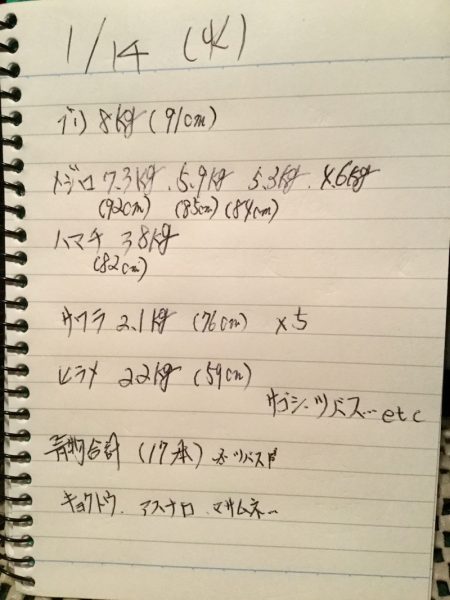 1/14 (水)
ブリ 8kg (91cm)
メジロ 7.3kg . 5.9kg 5.3kg . 4.6kg
(92cm) (85cm) (84cm)
ハマチ 3.8kg
(82cm)
サワラ 2.1kg (76cm) ×5
ヒラメ 2.2kg (59cm)
サゴシ、ツバス…etc
青物合計 (17本) ツバス
キョクトウ. アスナロ マサムネ…